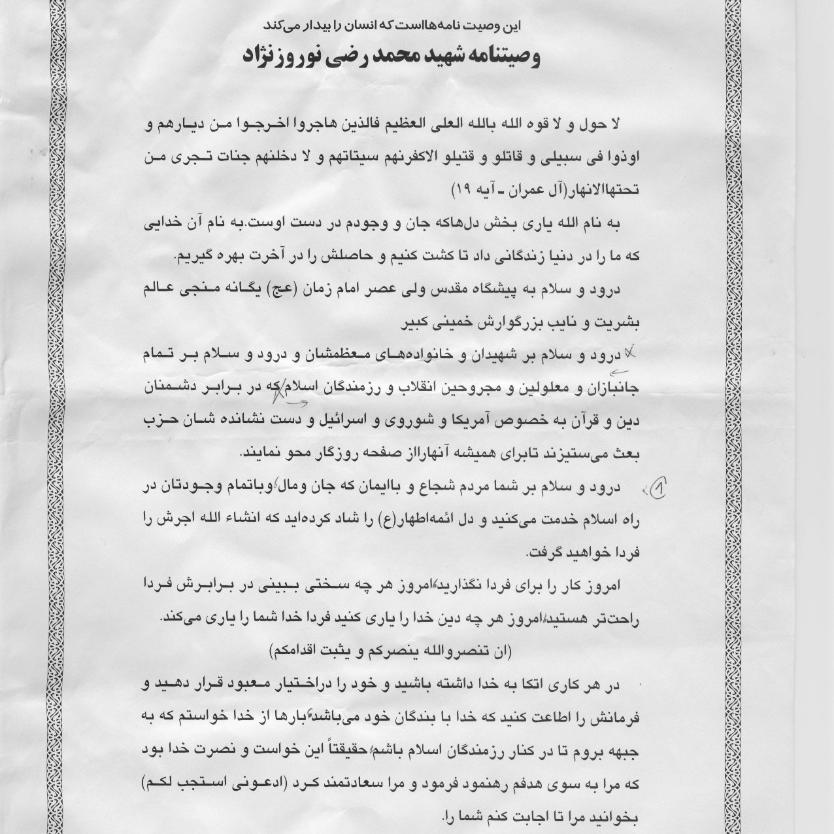 این وصیت نامه‌هااست که انسان را بیدار می‌کند
وصیتنامه شهید محمد رضی نوروزنژاد
لا حول و لا قوه الله بالله العلی العظیم فالذین هاجروا اخرجوا من دیارهم و
اوذوا فی سبیلی و قاتلو و قتیلو الاکفرنهم سیتاتهم و لا دخلنهم جنات تجری من
تحتهاالانهار(آل عمران - آیه ۱۹)
به نام الله یاری بخش دل‌هاکه جان و وجودم در دست اوست.به نام آن خدایی
که ما را در دنیا زندگانی داد تا کشت کنیم و حاصلش را در آخرت بهره گیریم.
درود و سلام به پیشگاه مقدس ولی عصر امام زمان (عج) یگانه منجی عالم
بشریت و نایب بزرگوارش خمینی کبیر
درود و سلام بر شهیدان و خانواده‌های معظمشان و درود و سلام بر تمام
جانبازان و معلولین و مجروحین انقلاب و رزمندگان اسلام که در برابر دشمنان
دین و قرآن به خصوص آمریکا و شوروی و اسرائیل و دست نشانده شان حزب
بعث می‌ستیزند تابرای همیشه آنهارااز صفحه روزگار محو نمایند.
۱ درود و سلام بر شما مردم شجاع و باایمان که جان ومال، وباتمام وجودتان در
راه اسلام خدمت می‌کنید و دل ائمه‌اطهار(ع) را شاد کرده‌اید که انشاء الله اجرش را
فردا خواهید گرفت.
امروز کار را برای فردا نگذارید،امروز هر چه سختی ببینی در برابرش فردا
راحت‌تر هستید،امروز هر چه دین خدا را یاری کنید فردا خدا شما را یاری می‌کند.
(ان تنصروالله ینصرکم و یثبت اقدامکم)
در هر کاری اتکا به خدا داشته باشید و خود را دراختیار معبود قرار دهید و
فرمانش را اطاعت کنید که خدا با بندگان خود می‌باشد،بارها از خدا خواستم که به
جبهه بروم تا در کنار رزمندگان اسلام باشم،حقیقتاً این خواست و نصرت خدا بود
که مرا به سوی هدفم رهنمود فرمود و مرا سعادتمند کرد (ادعونی استجب لکم)
بخوانید مرا تا اجابت کنم شما را.